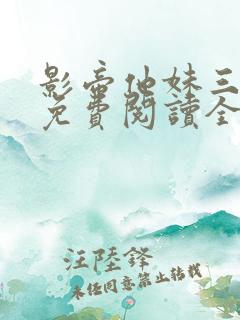 影帝他妹三
免費閱讀全
汪陸鋒
未經同意禁止轉載